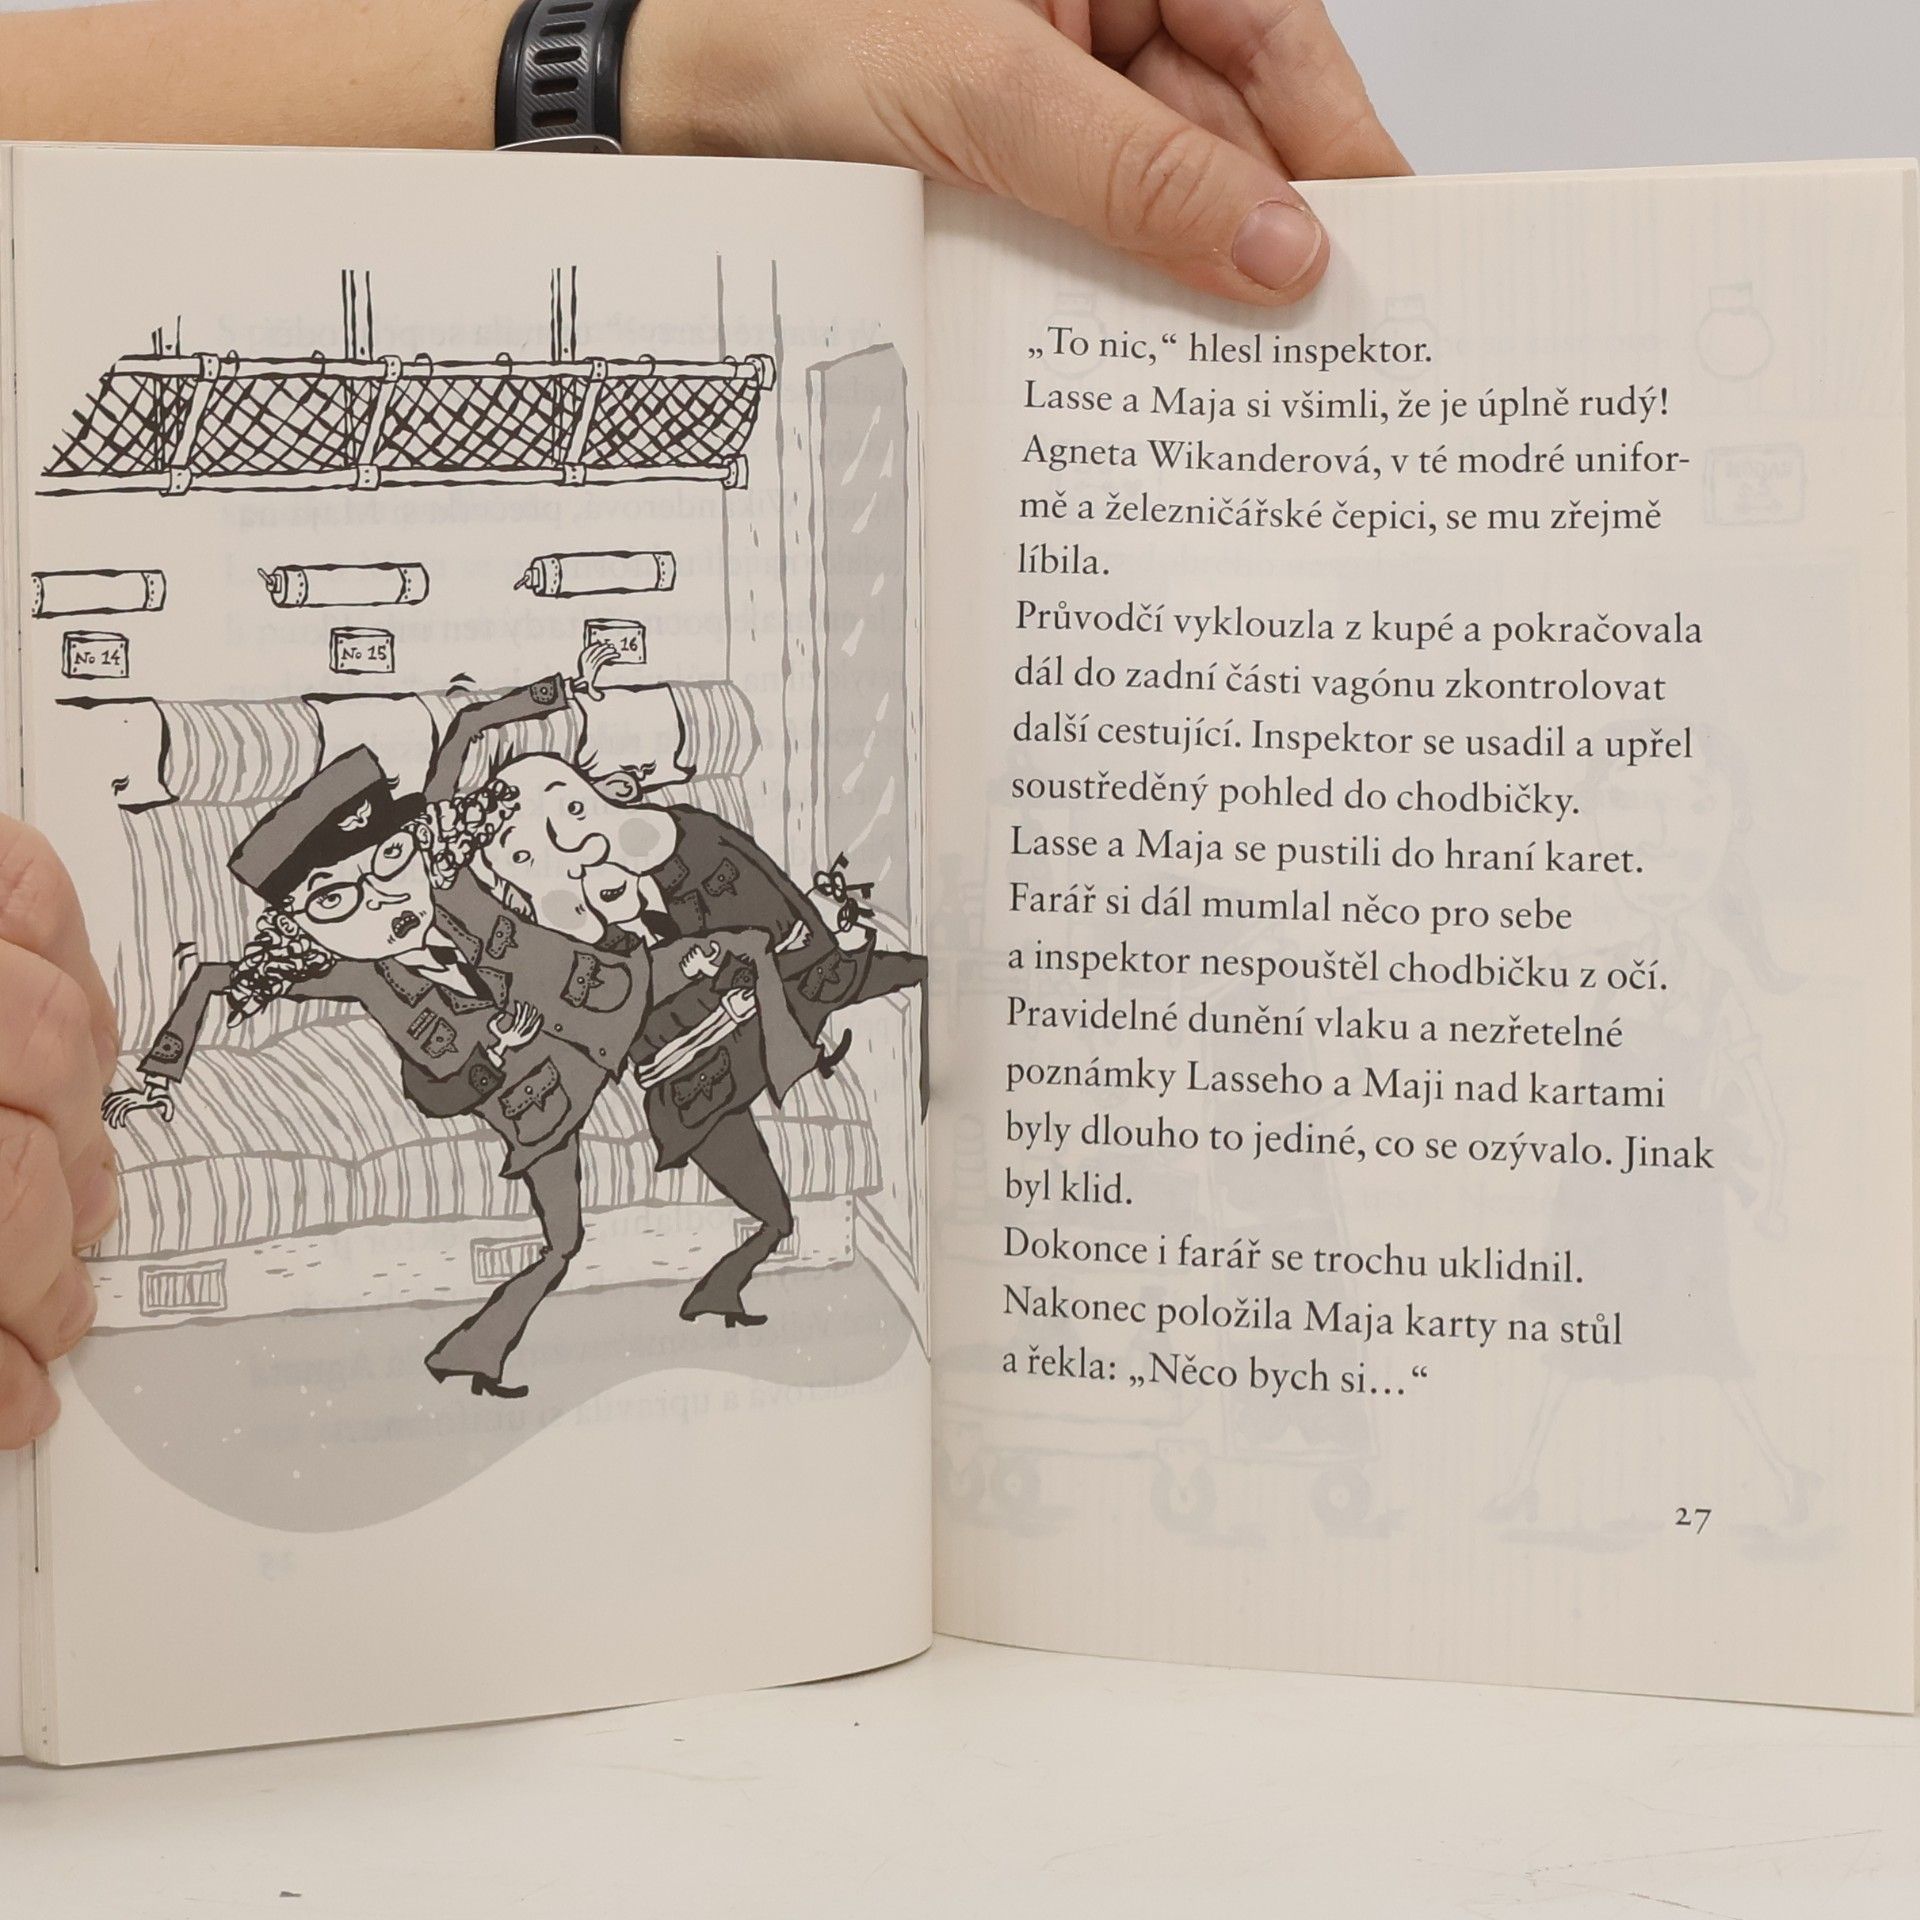 No 14
No 15
16
„To nic,“ hlesl inspektor.
Lasse a Maja si všimli, že je úplně rudý!
Agneta Wikanderová, v té modré unifor-
mě a železničářské čepici, se mu zřejmě
líbila.
Průvodčí vyklouzla z kupé a pokračovala
dál do zadní části vagónu zkontrolovat
další cestující. Inspektor se usadil a upřel
soustředěný pohled do chodbičky.
Lasse a Maja se pustili do hraní karet.
Farář si dál mumlal něco pro sebe
a inspektor nespouštěl chodbičku z očí.
Pravidelné dunění vlaku a nezřetelné
poznámky Lasseho a Maji nad kartami
byly dlouho to jediné, co se ozývalo. Jinak
byl klid.
Dokonce i farář se trochu uklidnil.
Nakonec položila Maja karty na stůl
a řekla: „Něco bych si…“
27